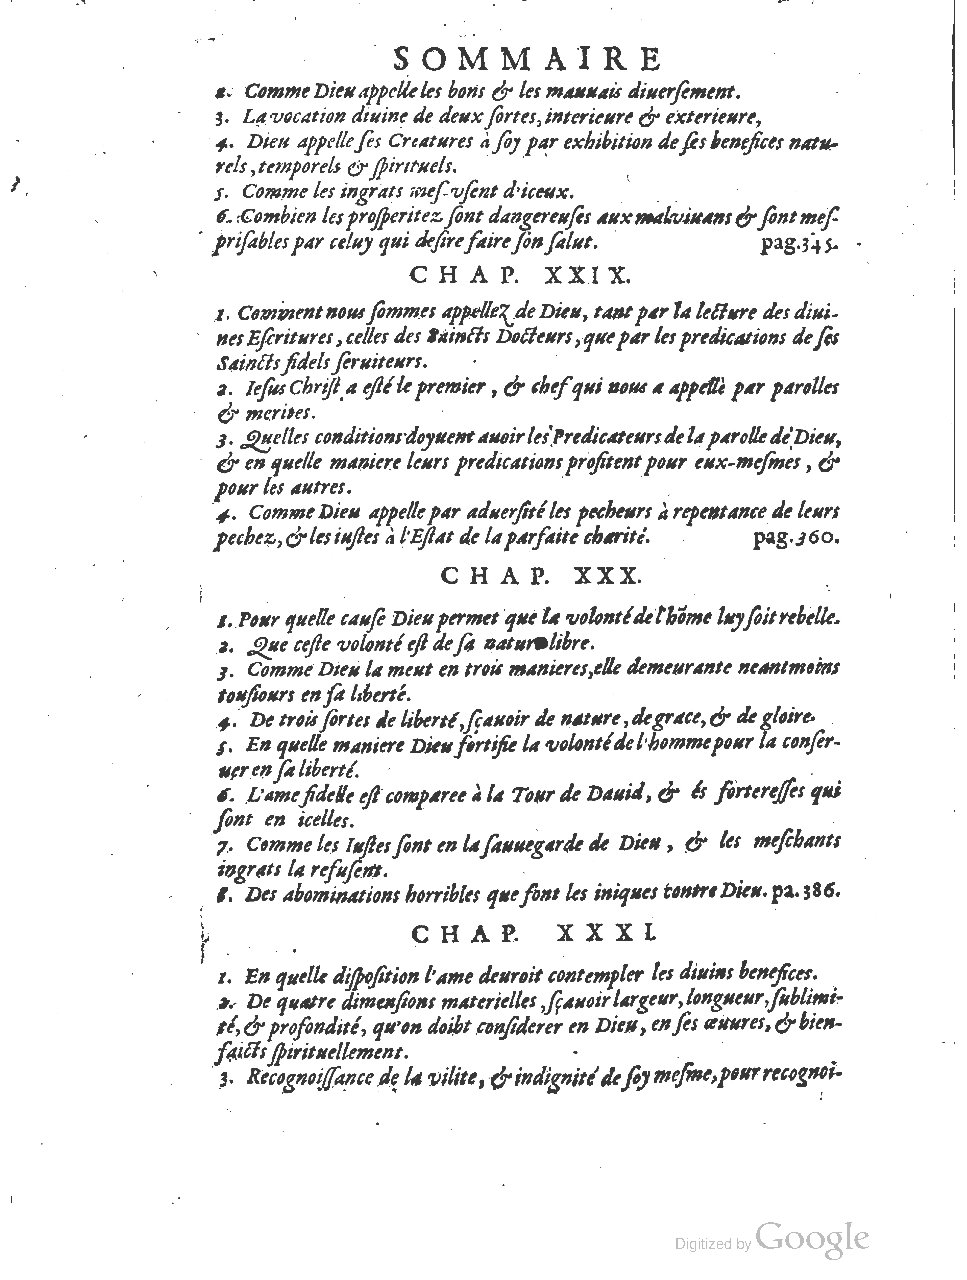 SOMMAIRE
2. Comme Dieu appelle les bons & les mauuais diuersement.
3. La vocation diuine de deux sortes, interieure & exterieure,
4. Dieu appelle ses Creatures à soy par exhibition de ses benefices natu-
rels, temporels & spirituels.
5. Comme les ingrats mes-vsent d'iceux.
6. Combien les prosperitez sont dangereuses aux malviuans & sont mes-
prisables par celuy qui desire faire son salut. pag.345.
CHAP. XXIX.
1. Comment nous sommes appellez de Dieu, tant par la lecture des diui-
nes Escritures, celles des Saincts Docteurs, que par les predications de ses
Saincts fidels seruiteurs.
2. Iesus Christ a esté le premier, & chef qui nous a appellè par parolles
& merites.
3. Quelles conditions doyuent auoir les Predicateurs de la parolle de Dieu,
& en quelle maniere leurs predications profitent pour eux-mesmes, &
pour les autres.
4. Comme Dieu appelle par aduersité les pecheurs à repentance de leurs
pechez, & les iustes à l'Estat de la parfaite charité. pag.360.
CHAP. XXX.
1. Pour quelle cause Dieu permet que la volonté de l'hõme luy soit rebelle.
2. Que ceste volonté est de sa nature libre.
3. Comme Dieu la meut en trois manieres, elle demeurante neantmoins
tousiours en sa liberté.
4. De trois sortes de liberté, sçauoir de nature, de grace, & de gloire.
5. En quelle maniere Dieu fortifie la volonté de l'homme pour la conser-
uer en sa liberté.
6. L'ame fidelle est comparee à la Tour de Dauid, & és forteresses qui
sont en icelles.
7. Comme les Iustes sont en la sauuegarde de Dieu, & les meschants
ingrats la refusent.
8. Des abominations horribles que font les iniques contre Dieu. pa.386.
CHAP. XXXI.
1. En quelle disposition l'ame deuroit contempler les diuins benefices.
2. De quatre dimensions materielles, sçauoir largeur, longueur, sublimi-
té, & profondité, qu'on doibt considerer en Dieu, en ses œuures, & bien-
faicts spirituellement.
3. Recognoissance de la vilite, & indignité de soy mesme, pour recognoi-
Digitized by Google